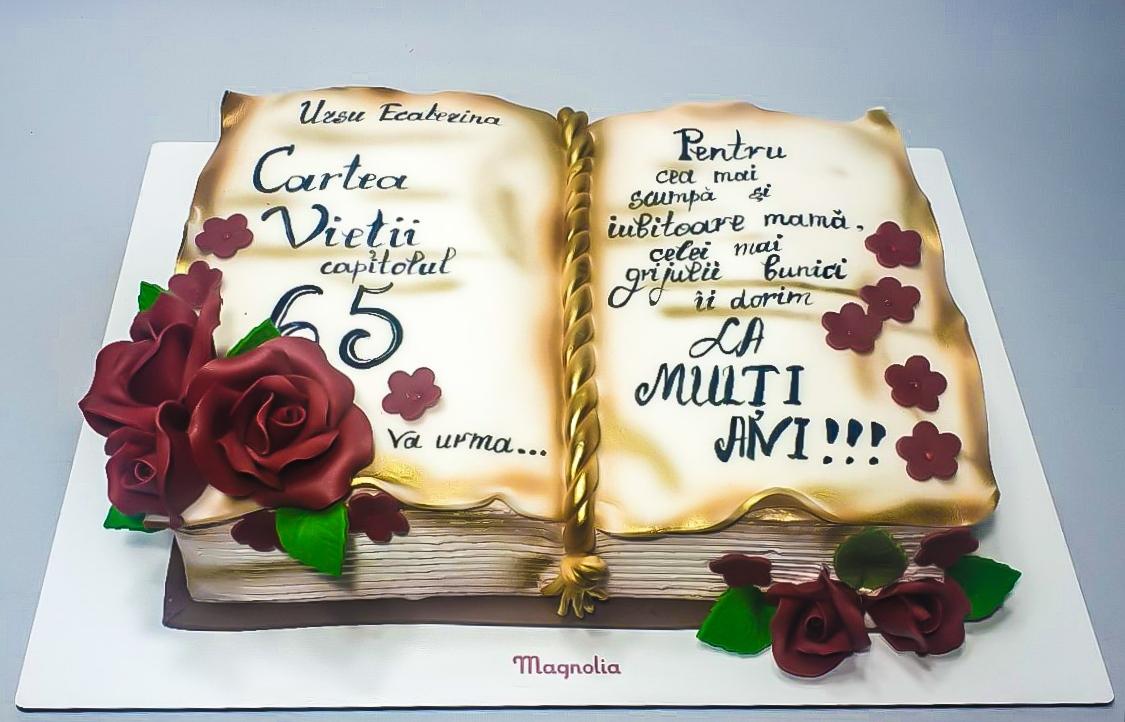 Ursu Ecaterina
Cartea
Vieții
capitolul
65
va urma...
Pentru
cea mai
scumpă și
iubitoare mamă,
celei mai
grijulii bunici
îi dorim
LA
MULȚI
ANI!!!
Magnolia